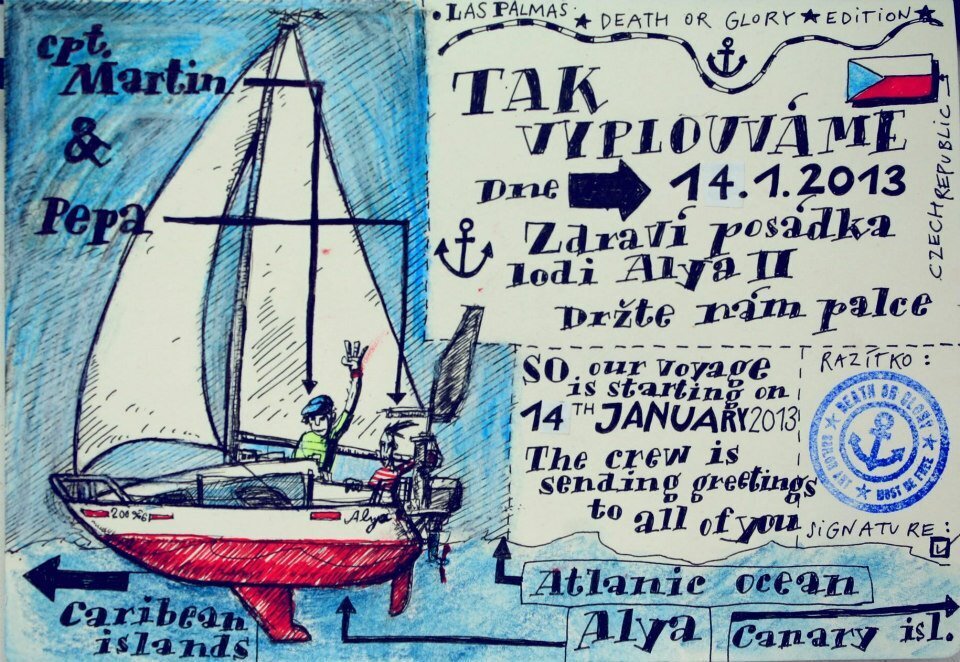 cpt.
Martin
&
Pepa
.LAS PALMAS.
★ DEATH OR GLORY ★ EDITION ★
TAK
VYPLOUVÁME
Dne 14.1.2013
Zdraví posádka
lodi Alya II
Držte nám palce
CZECH REPUBLIC
SO. our voyage
is starting on
14TH JANUARY 2013
The crew is
sending greetings
to all of you
RAZÍTKO:
DEATH OR GLORY
MUST BE FREE
SIGNATURE:
200 966
Alya
Atlanic ocean
Caribean
islands
Alya
Canary isl.